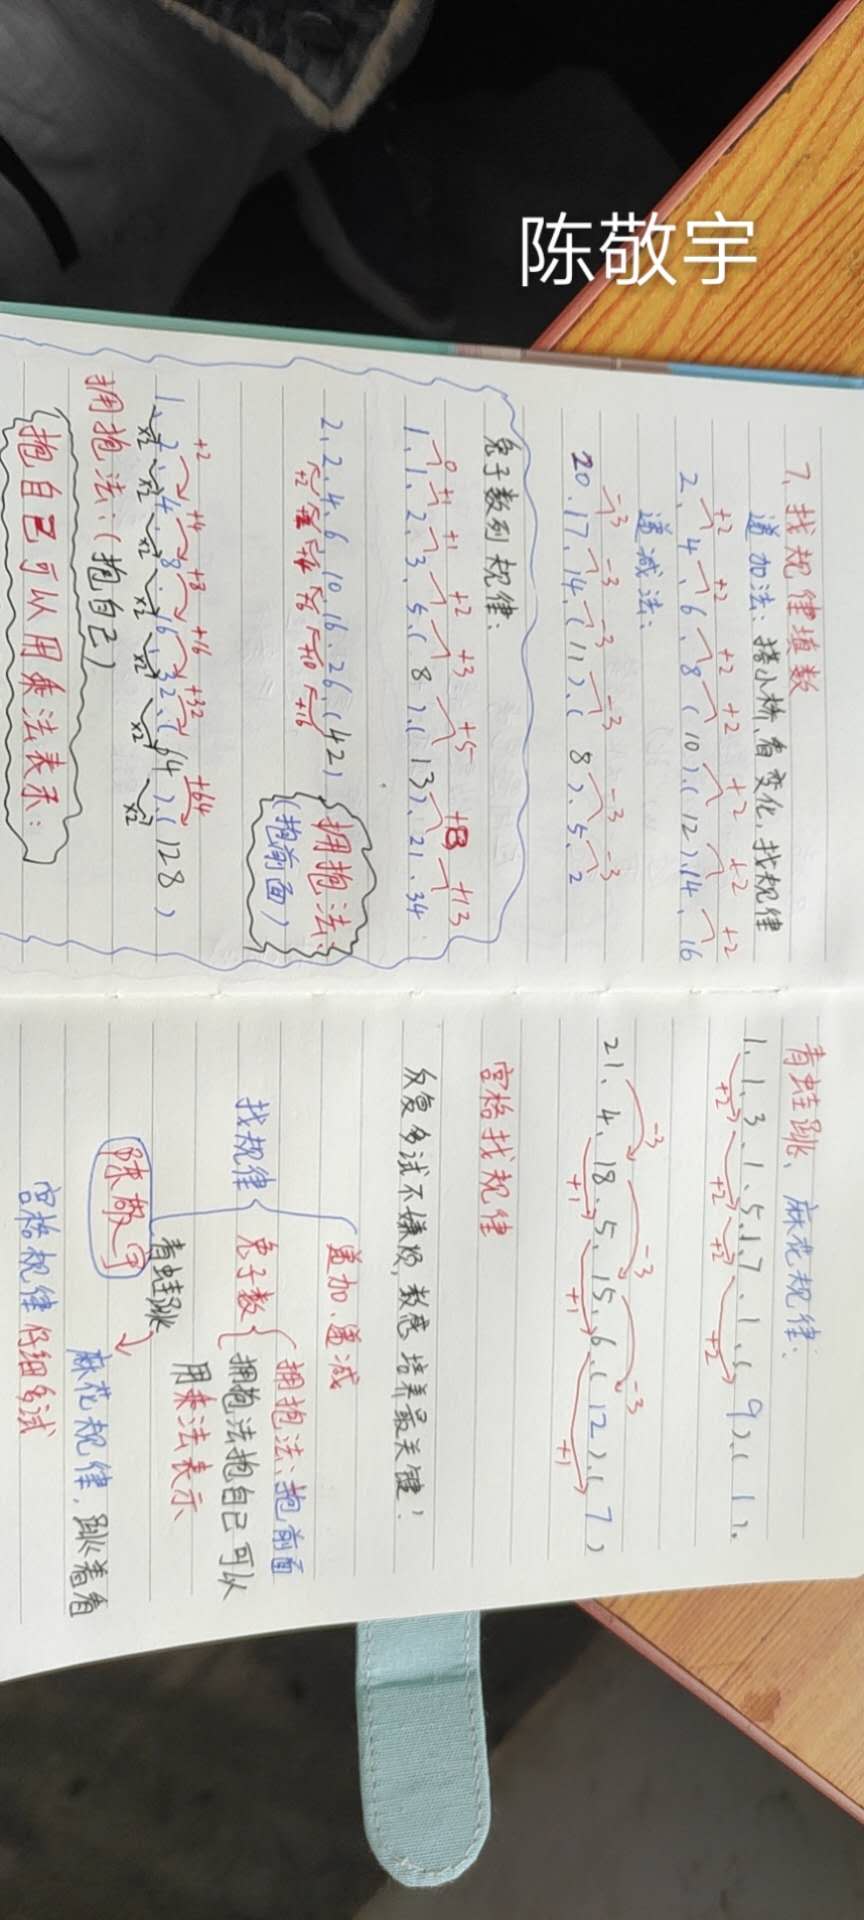 陈敬宇
7、找规律填数
递加法：搭小桥、看变化，找规律
+2 +2 +2 +2 +2 +2 +2
2、4、6、8（10）、（12）、14、16
递减法：
-3 -3 -3 -3 -3 -3
20、17、14、（11）、（8）、5、2
兔子数列规律：
0 +1 +1 +2 +3 +5 +8 +13
1、1、2、3、5、（8）、（13）、21、34
2、2、4、6、10、16、26、（42）
+2 +4 +6 +10 +16
拥抱法：
（抱前面）
+2 +4 +8 +16 +32 +64
1、2、4、8、16、32、（64）、（128）
x2 x2 x2 x2 x2 x2 x2
拥抱法：（抱自己）
抱自己可以用乘法表示：
青蛙跳、麻花规律：
1、1、3、1、5、1、7、1、（9）、（1）、
+2 +2 +2 +2
-3 -3 -3
21、4、18、5、15、6、（12）、（7）
+1 +1 +1
宫格找规律
反复多试不嫌烦，数感培养最关键！
找规律
递加、递减
兔子数
拥抱法：抱前面
拥抱法抱自己可以
用乘法表示
青蛙跳
麻花规律，跳着看
陈敬宇
宫格规律仔细多试